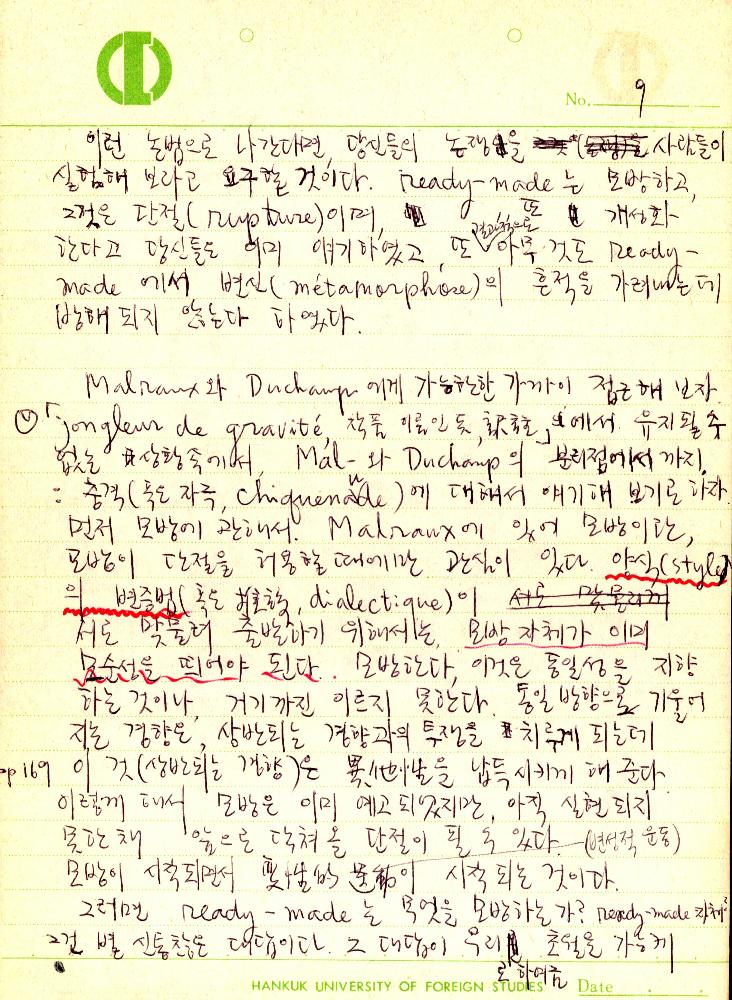 No. 9
이런 논법으로 나간다면, 당신들의 논쟁을 사람들이
실험해 보라고 요구할 것이다. ready-made 는 모방하고,
그것은 단절(rupture)이며, 또 개성화
한다고 당신들도 이미 얘기하였고, 또 결과적으로 아무 것도 ready-
made 에서 변신(métamorphose)의 흔적을 가려내는데
방해되지 않는다 하였다.
Malraux와 Duchamp에게 가능한한 가까이 접근해 보자.
「jongleur de gravité, 작품 이름인 듯, 」에서 유지될 수
없는 상황속에서, Mal- 와 Duchamp의 분리점에서 까지,
: 충격(혹은 자극, chiquenaude)에 대해서 얘기해 보기로 하자.
먼저 모방에 관해서. Malraux에 있어 모방이란,
모방이 단절을 허용할 때에만 관심이 있다. 양식(style)
의 변증법(혹은 dialectique)이 서로 맞물리게
서로 맞물려 출발하기 위해서는, 모방 자체가 이미
모순성을 띄어야 된다. 모방한다, 이것은 동일성을 지향
하는 것이나, 거기까진 이르지 못한다. 동일 방향으로 기울어
지는 경향은, 상반되는 경향과의 투쟁을 치루게 되는데
pp 169 이 것(상반되는 경향)은 異他性을 납득시키게 해 준다.
이렇게 해서 모방은 이미 예고되었지만, 아직 실현되지
못한 채 앞으로 닥쳐올 단절이 될 수 있다. (변성적 운동)
모방이 시작되면서 變性的 運動이 시작되는 것이다.
그러면 ready-made 는 무엇을 모방하는가? ready-made 자체?
그건 별 신통찮은 대답이다. 그 대답이 우리로 하여금 초월을 가능케
HANKUK UNIVERSITY OF FOREIGN STUDIES Date . .